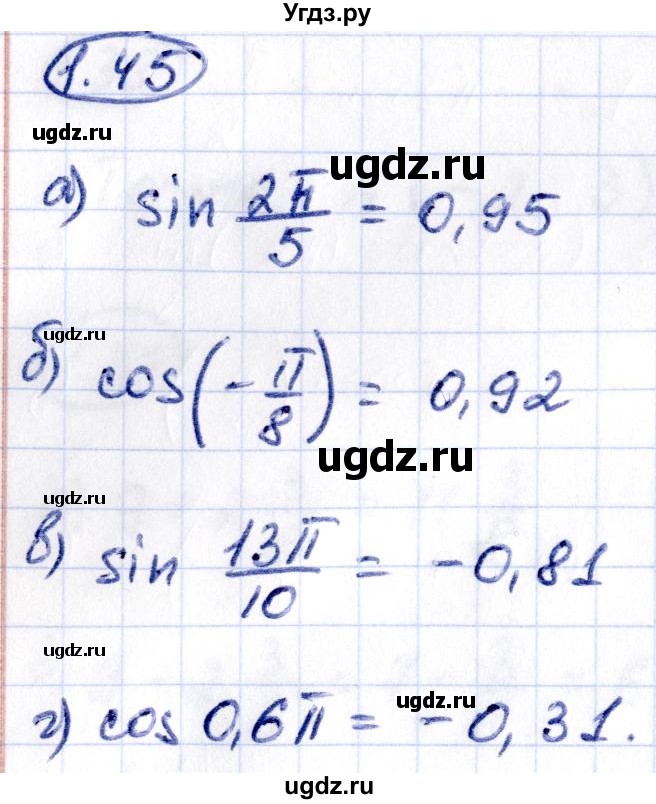 Угдз.ру
1.45
ugdz.ru
ugdz.ru
а) sin 2π/5 = 0,95
ugdz.ru
б) cos(-π/8) = 0,92
ugdz.ru
ugdz.ru
в) sin 13π/10 = -0,81
ugdz.ru
ugdz.ru
г) cos 0,6π = -0,31.
ugdz.ru
ugdz.ru